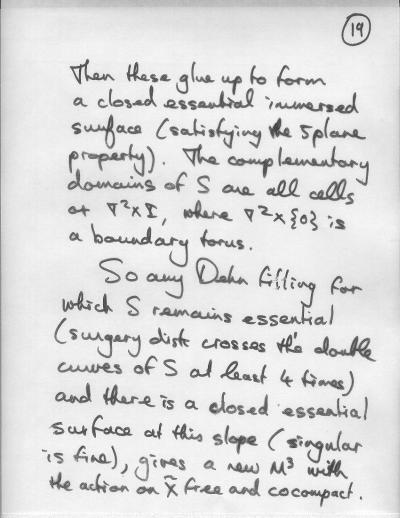 19
Then these glue up to form
a closed essential immersed
surface (satisfying the 5 plane
property). The complementary
domains of S are all cells
or T²×I, where T²×{0} is
a boundary torus.
So any Dehn filling for
which S remains essential
(surgery disk crosses the double
curves of S at least 4 times)
and there is a closed essential
surface at this slope (singular
is fine), gives a new M³ with
the action on X̃ free and cocompact.